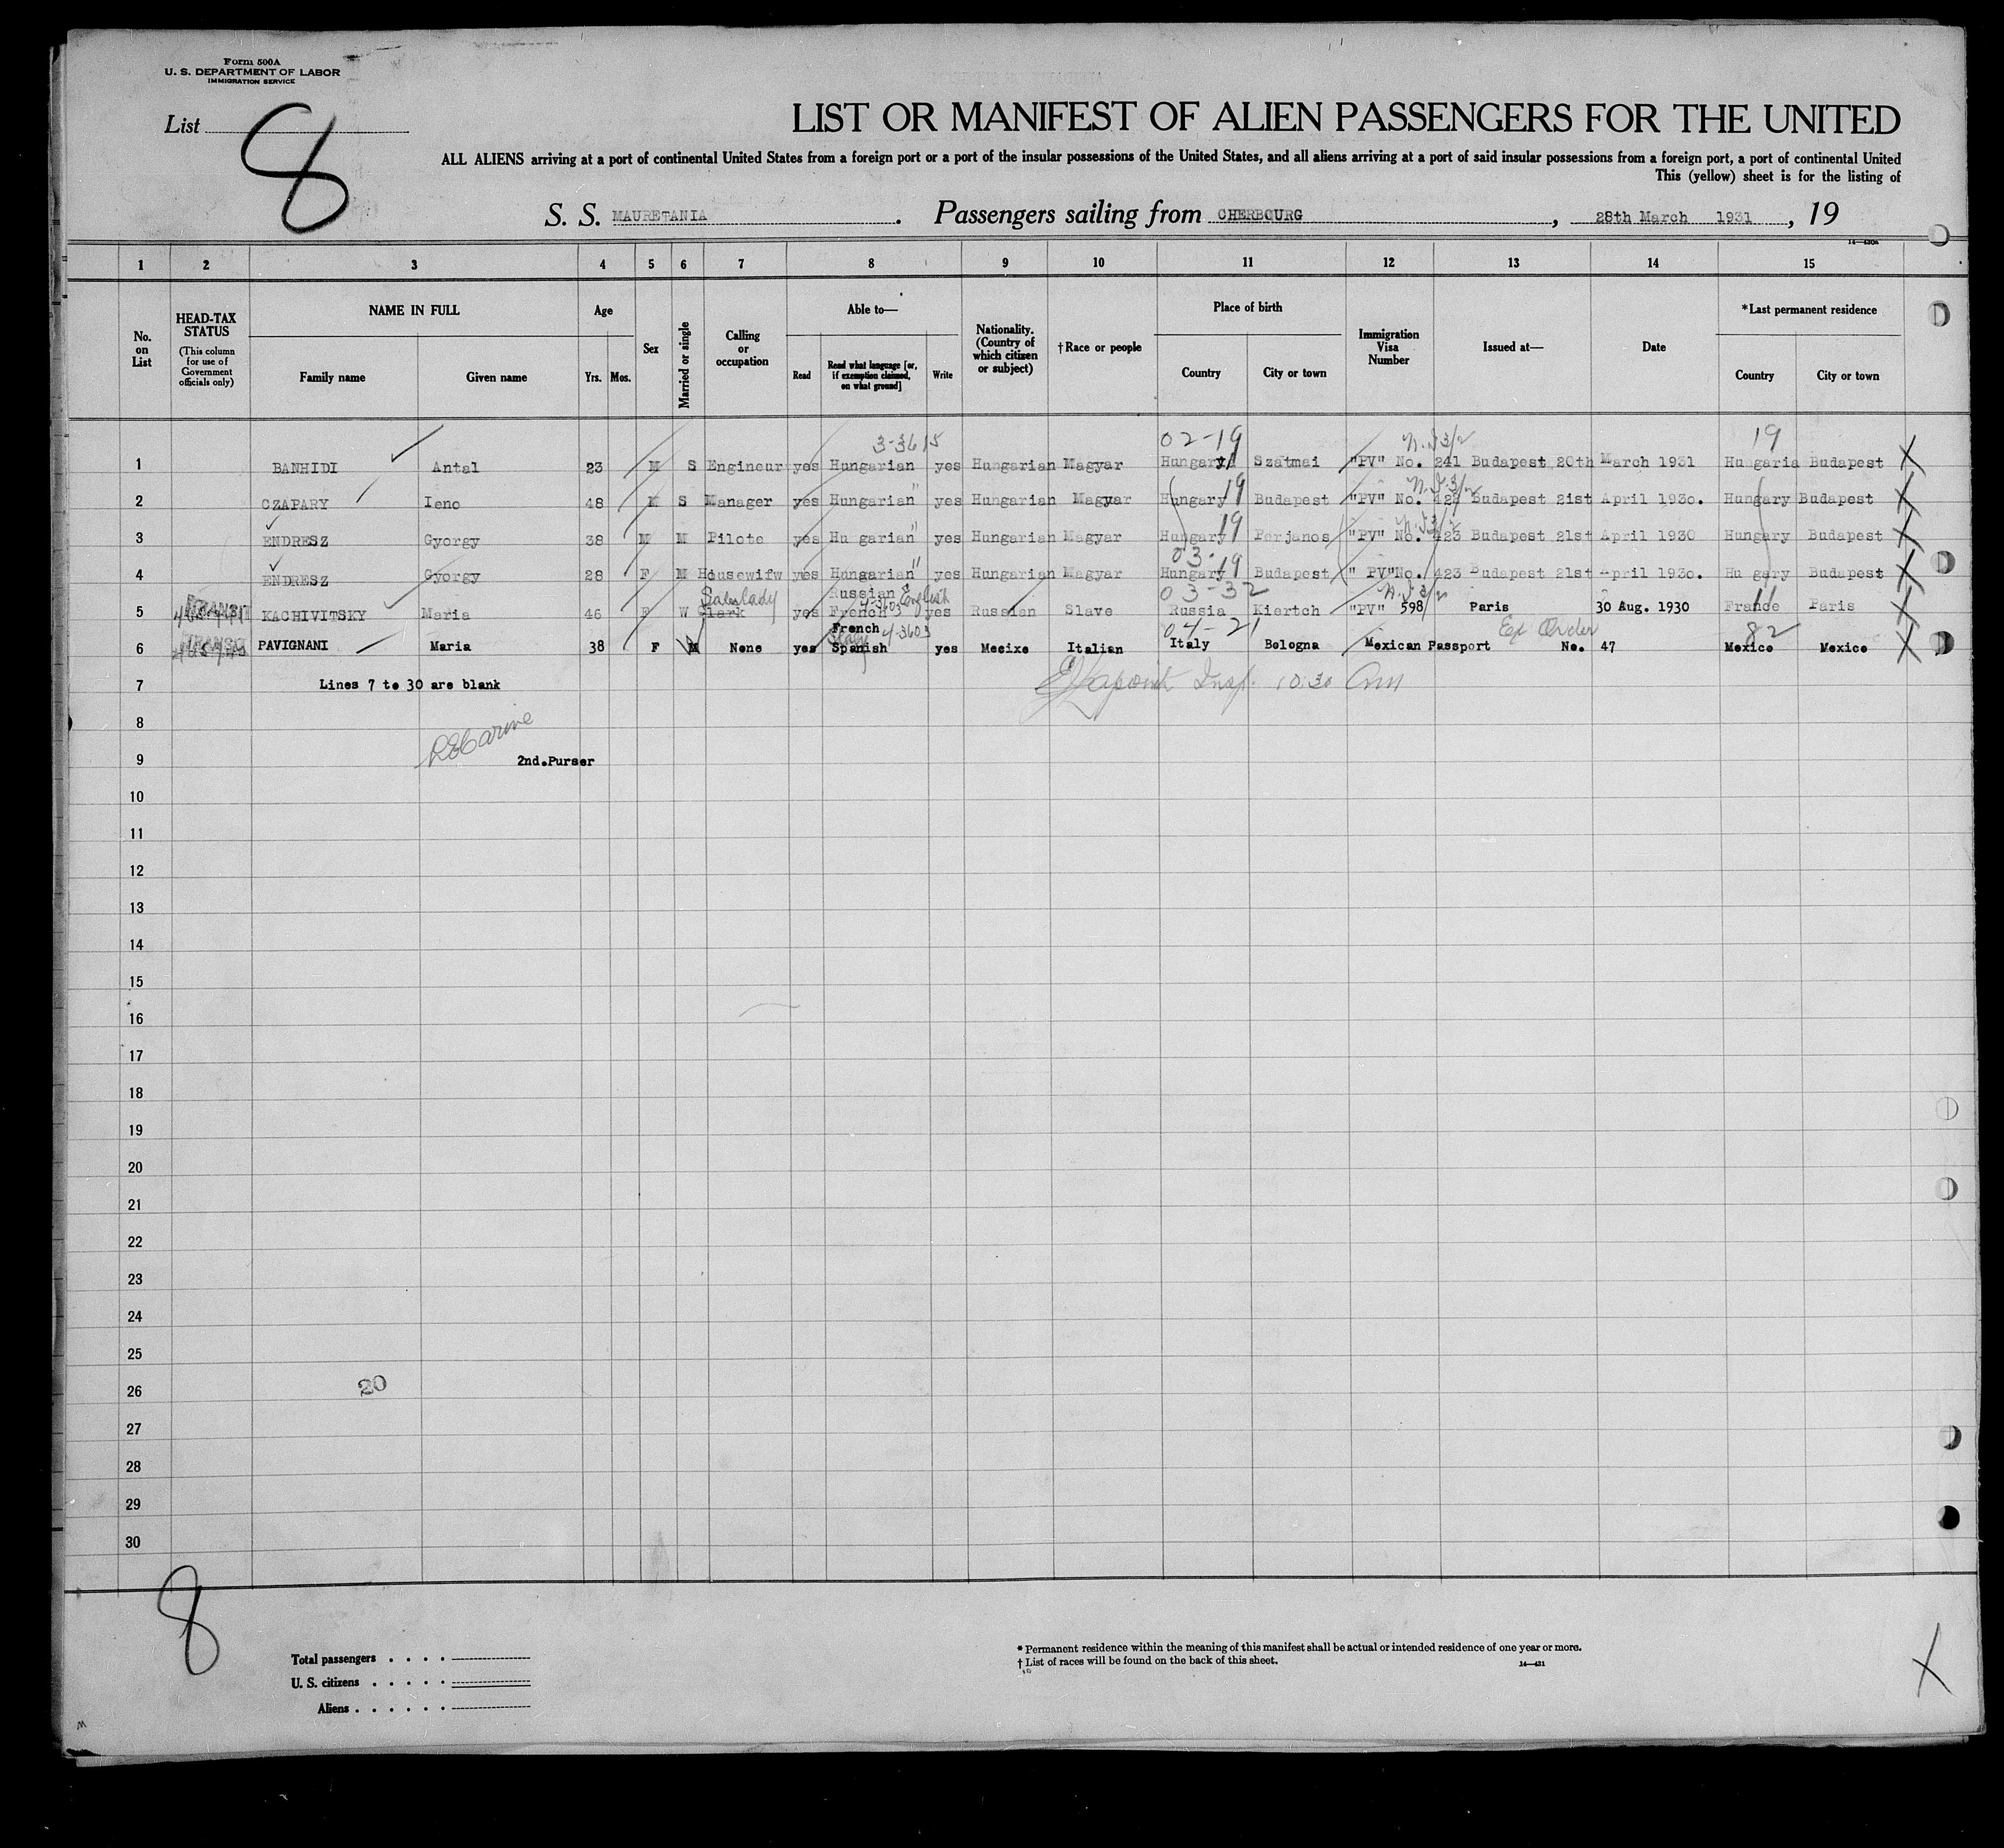 Form 500A
U. S. DEPARTMENT OF LABOR
IMMIGRATION SERVICE
List 8
LIST OR MANIFEST OF ALIEN PASSENGERS FOR THE UNITED
ALL ALIENS arriving at a port of continental United States from a foreign port or a port of the insular possessions of the United States, and all aliens arriving at a port of said insular possessions from a foreign port, a port of continental United
This (yellow) sheet is for the listing of
S. S. MAURETANIA. Passengers sailing from CHERBOURG, 28th March 1931, 19
14—430a
1 2 3 4 5 6 7 8 9 10 11 12 13 14 15
No. on List
HEAD-TAX STATUS (This column for use of Government officials only)
NAME IN FULL
Family name Given name
Age
Yrs. Mos.
Sex
Married or single
Calling or occupation
Able to—
Read
Read what language [or, if exemption claimed, on what ground]
Write
Nationality. (Country of which citizen or subject)
†Race or people
Place of birth
Country City or town
Immigration Visa Number
Issued at—
Date
*Last permanent residence
Country City or town
3-3615 02-19 19
1 BANHIDI Antal 23 M S Engineur yes Hungarian yes Hungarian Magyar Hungary Szatmai "PV" No. 241 Budapest 20th March 1931 Hungaria Budapest X
2 CZAPARY Ieno 48 M S Manager yes Hungarian " yes Hungarian Magyar Hungary 19 Budapest "PV" No. 423 Budapest 21st April 1930. Hungary Budapest X
3 ENDRESZ Gyorgy 38 M M Pilote yes Hu garian " yes Hungarian Magyar Hungary 19 Perjanos "PV" No. 423 Budapest 21st April 1930 Hungary Budapest X
03-
4 ENDRESZ Gyorgy 28 F M Housewifw yes Hungarian " yes Hungarian Magyar Hungary 19 Budapest " PV"No. 423 Budapest 21st April 1930. Hu gary Budapest X
Saleslady Russian English 03-32 11
5 TRANSIT KACHIVITSKY Maria 46 F W Clark yes French 4-3603 yes Russian Slave Russia Kiertch "PV" 598 Paris 30 Aug. 1930 France Paris X
French 4-3603 04-21 Ex Order 82
6 TRANSIT PAVIGNANI Maria 38 F M None yes Spanish yes Mecixo Italian Italy Bologna Mexican Passport No. 47 Mexico Mexico X
7 Lines 7 to 30 are blank Insp. 10:30 Am
8
9 2nd.Purser
10
11
12
13
14
15
16
17
18
19
20
21
22
23
24
25
26 20
27
28
29
30
8
Total passengers . . . .
U. S. citizens . . . . .
Aliens . . . . . .
* Permanent residence within the meaning of this manifest shall be actual or intended residence of one year or more.
† List of races will be found on the back of this sheet.
14—431
X